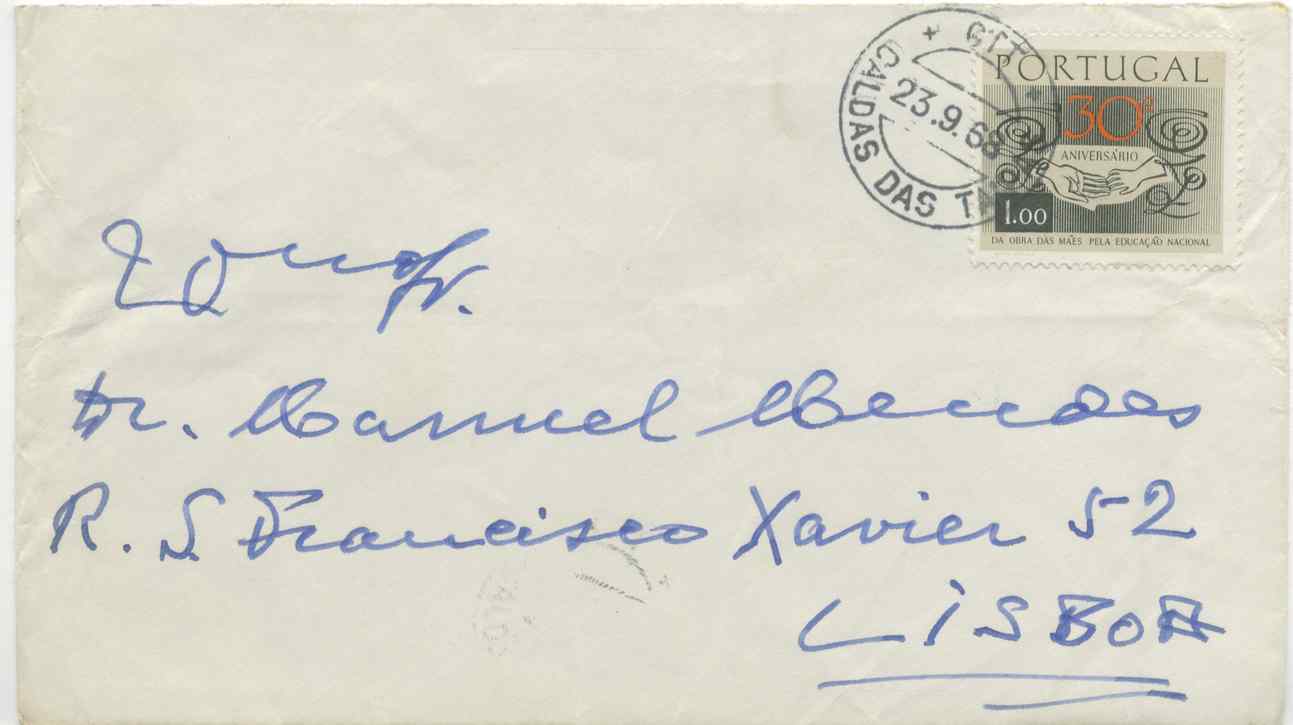 CTT
CALDAS DAS TA
23.9.68
PORTUGAL
30º
ANIVERSÁRIO
1.00
DA OBRA DAS MÃES PELA EDUCAÇÃO NACIONAL
Dr. Manuel Mendes
R. S. Francisco Xavier 52
LISBOA